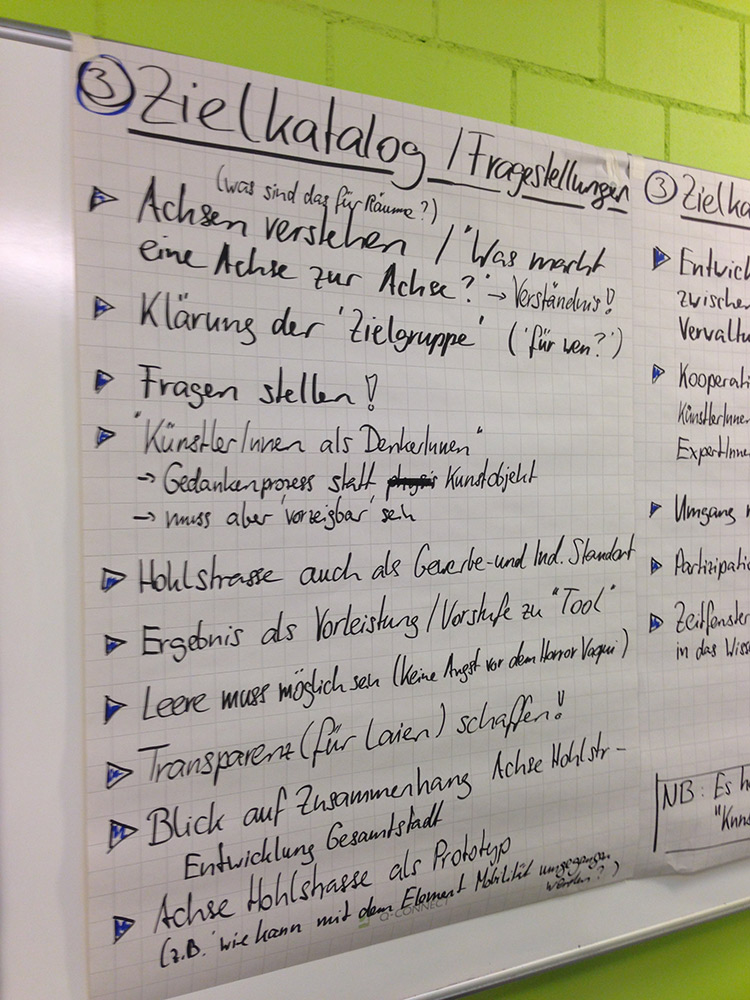 ③ Zielkatalog / Fragestellungen
(was sind das für Räume?)
Achsen verstehen / "Was macht
eine Achse zur Achse?" → Verständnis!
Klärung der 'Zielgruppe' ('für wen?')
Fragen stellen!
"KünstlerInnen als DenkerInnen"
→ Gedankenprozess statt Kunstobjekt
→ muss aber 'vorzeigbar' sein
Hohlstrasse auch als Gewerbe- und Ind. Standort
Ergebnis als Vorleistung / Vorstufe zu "Tool"
Leere muss möglich sein (Keine Angst vor dem Horror Vaqui)
Transparenz (für Laien) schaffen!
Blick auf Zusammenhang Achse Hohlstr -
Entwicklung Gesamtstadt
Achse Hohlstrasse als Prototyp
(z.B. 'wie kann mit dem Element Mobilität umgegangen
werden?')
Q-CONNECT
③ Zielka
Entwick
zwischen
Verwaltu
Kooperati
KünstlerInne
ExpertInne
Umgang
Partizipatio
Zeitfenster
in das Wiss
NB: Es h
"Kuns